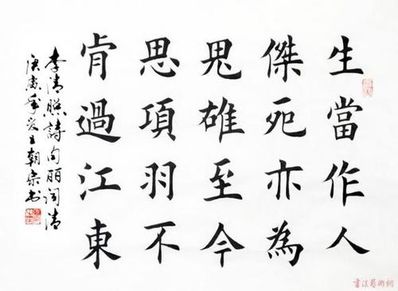 生當作人
傑死亦為
鬼雄至今
思項羽不
肯過江東
李清照詩句
王朝宗书
書法藝術網